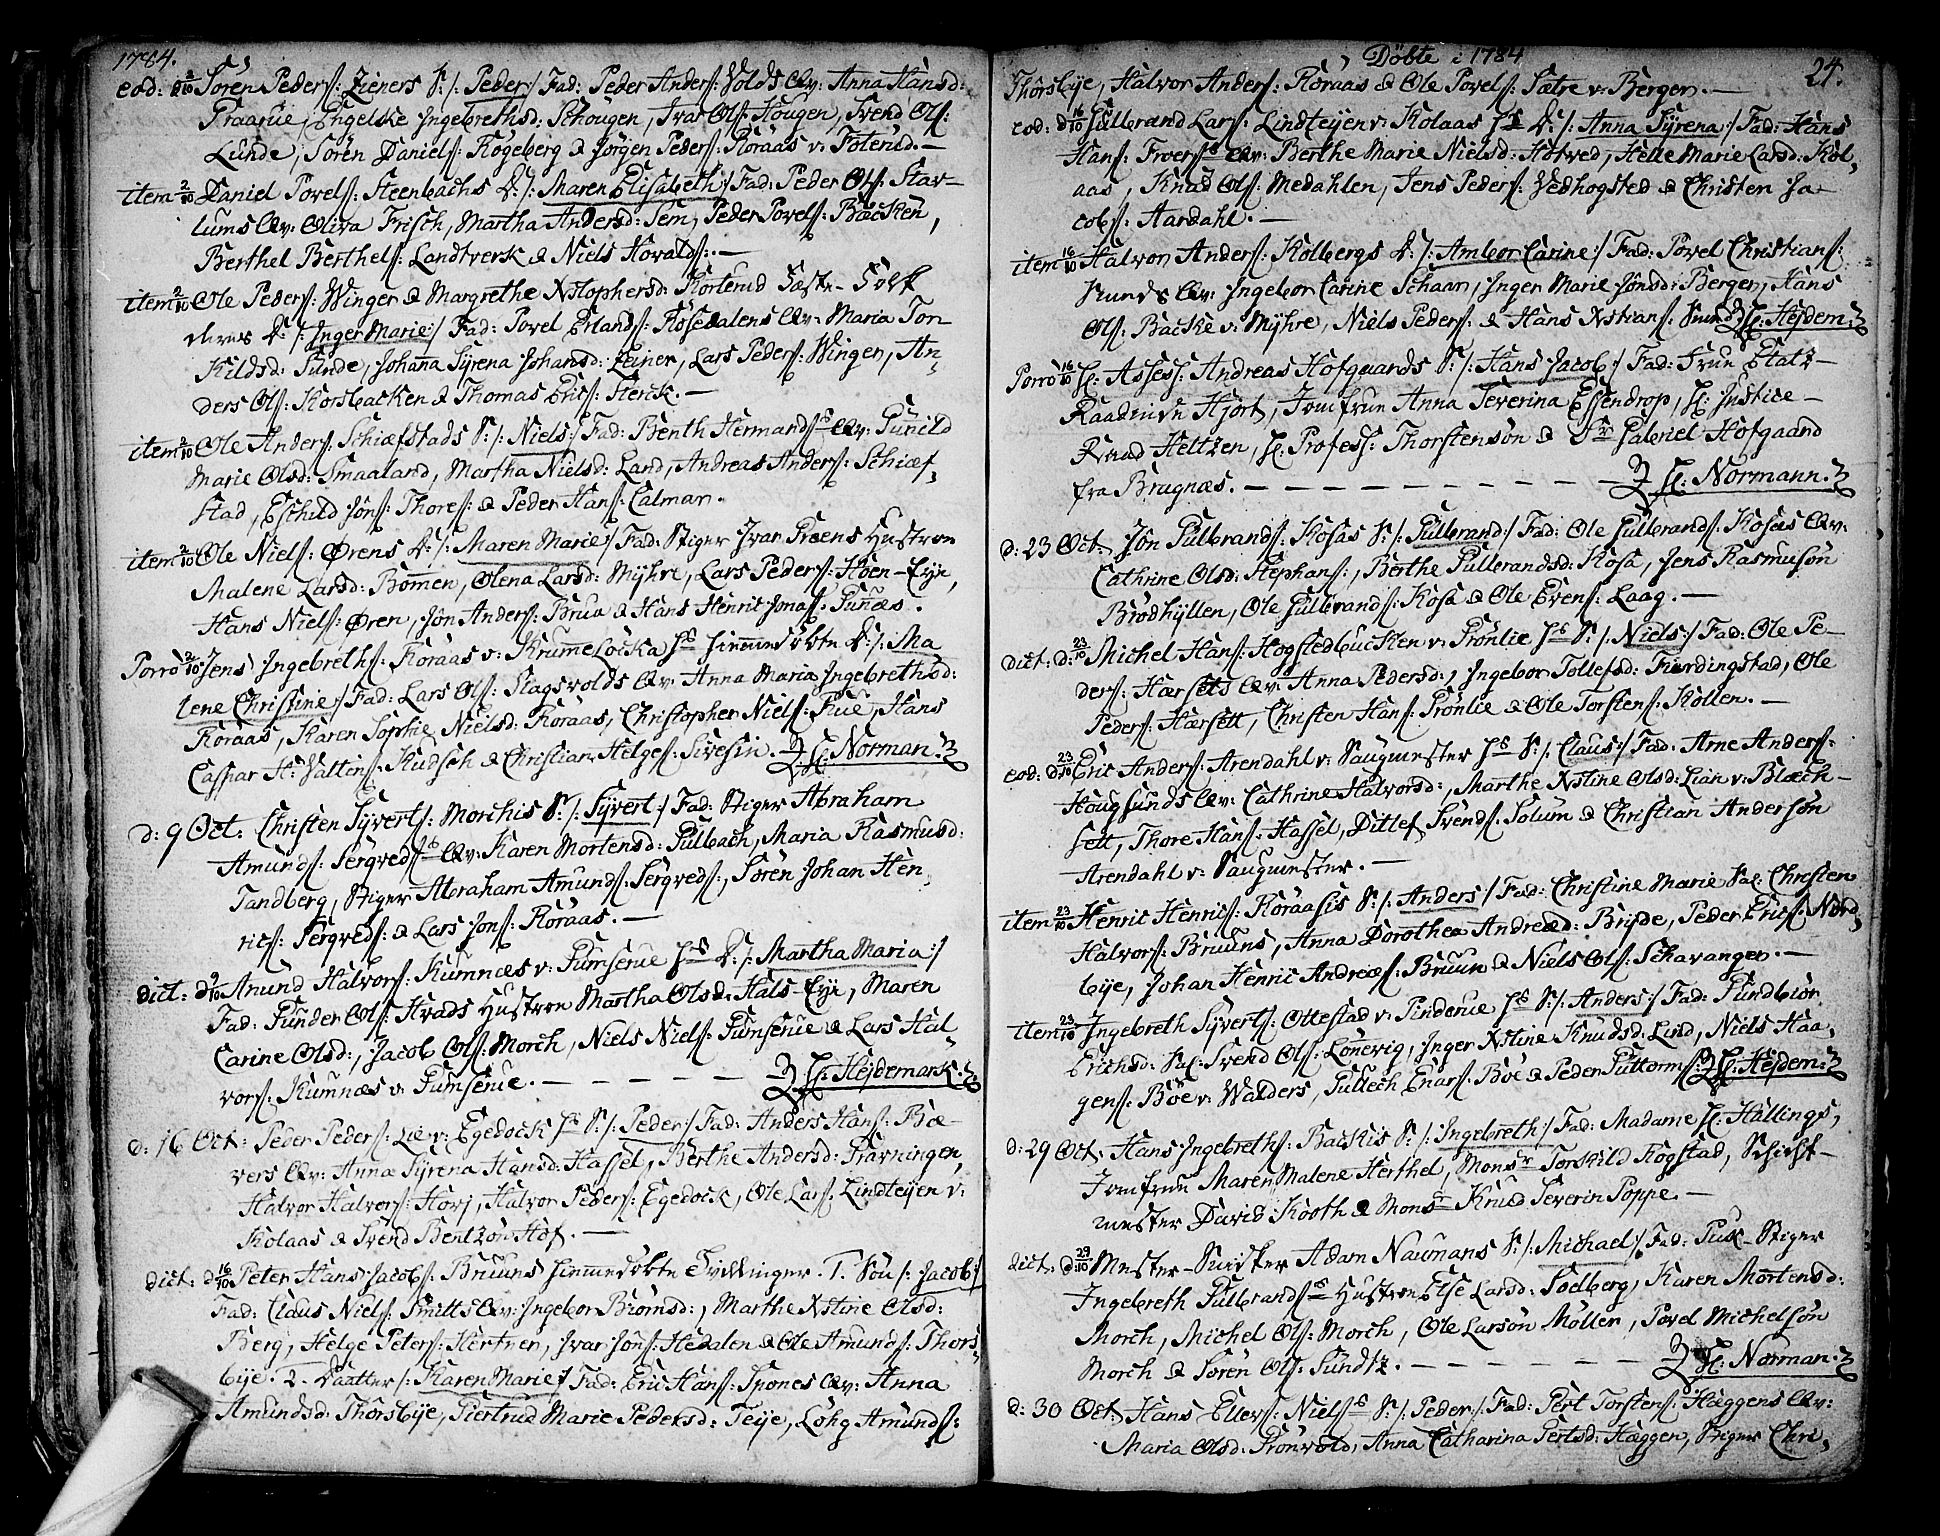 1784.
eod: d 2/10 Sören Peders: Zieners S: /: Peder :/ Fad: Peder Anders: Volds Qv: Anna Hansd:
Praarüe, Engelske Ingebrethsd: Schougen, Ivar Ols: Hougen, Svend Ols:
Lunde, Sören Daniels: Fogeberg & Jörgen Peders: Röraas v: Totensd. —
item 2/10 Daniel Povels: Steenbachs D: /: Maren Elisabeth :/ Fad: Peder Ols: Stav-
lums Qv: Oliva Frisch, Martha Andersd: Sem, Peder Povels: Backen,
Berthel Berthels: Landtverk & Niels Hovalds: —
item 2/10 Ole Peders: Winger & Margrethe Xstophersd: Korterud Fæste-Folk
deres D: /: Inger Marie :/ Fad: Povel Erlands: Rosedalens Qv: Maria Tor-
Kildsd: Funde, Johana Syrena Johansd: Zeiner, Lars Peders: Winger, An-
ders Ols: Korsbacken & Thomas Erics: Sterck. —
item 2/10 Ole Anders: Schiæfstads S: /: Niels :/ Fad: Benth Hermands: Qv: Gunild
Marie Olsd: Smaaland, Martha Nielsd: Land, Andreas Anders: Schiæf-
stad, Eschild Jöns: Thores: & Peder Hans: Calmar.
item 2/10 Ole Niels: Ørens D: /: Maren Marie :/ Fad: Stiger Ivar Preens Hustroe
Malene Larsd: Bömen, Olena Larsd: Myhre, Lars Peders: Hoen-Eye,
Hans Niels: Øren, Jön Anders: Brua & Hans Henric Jonas: Gunæs.
Porro 2/10 Jens Ingebreths: Roraas v: KrummeLöcka Hs hiemmedöbte D: /: Ma
lene Christine :/ Fad: Lars Ols: Flagsvolds Qv: Anna Maria Ingebrethsd:
Roraas, Karen Sophie Nielsd: Roraas, Christopher Niels: Rue, Hans
Caspar H: Valtins: Kudsch & Christian Helges: Sivesin. H: Norman.
d: 9 Oct: Christen Syverts: Morchis S: /: Syvert :/ Fad: Stiger Abraham
Amunds: Sergveds: Qv: Karen Mortensd: Gulbach, Maria Rasmusd:
Tandberg, Stiger Abraham Amunds: Sergveds:, Sören Johan Hen-
rics: Sergveds: & Lars Jons: Roraas. —
dict: d 9/10 Amund Halvors: Rumnæs v: Gumserue Hs D: /: Martha Maria :/
Fad: Gunder Ols: Hvads Hustroe Martha Olsd: Hals-Eye, Maren
Carine Olsd:, Jacob Ols: Morch, Niels Niels: Gumserue & Lars Hal-
vors: Rumnæs v: Gumserue. — H: Hejdemark.
d: 16 Oct: Peder Peders: Lie v: Egedock Hs S: /: Peder :/ Fad: Anders Hans: Bæ-
vers Qv: Anna Syrena Hansd: Hassel, Berthe Andersd: Gravningen,
Halvor Halvors: Hovj, Halvor Peders: Egedock, Ole Lars: Lindteijen v:
Kolaas & Svend Bentzon Hof. —
dict: d 16/10 Peter Hans Jacobs: Bruuns hiemmedöbte Tvillinger. 1. Sön /: Jacob :/
Fad: Claus Niels: Smitts Qv: Ingebor Biörnsd:, Marthe Xstine Olsd:
Berg, Helge Peters: Hertner, Ivar Jöns: Hedalen & Ole Amunds: Thors-
bye. 2. Daatter /: Karen Marie :/ Fad: Eric Hans: Spones Qv: Anna
Amundsd: Thorsbye, Giertrud Marie Pedersd: Teije, Löhg Amunds:
Döbte i 1784
24.
Thorsbye, Halvor Anders: Roraas & Ole Povels: Sætre v: Bergen. —
eod: d 16/10 Gulbrand Lars: Lindteijen v: Kolaas Hs D: /: Anna Syrena :/ Fad: Hans
Hans: Froers: Qv: Berthe Marie Nielsd: Hotved, Helle Marie Larsd: Kol-
aas, Knud Ols: Medahlen, Jens Peders: Vedhogsted & Christen Ja-
cobs: Aardahl. —
item 16/10 Halvor Anders: Kolbergs D: /: Ambor Carine :/ Fad: Povel Christians:
Sunds Qv: Ingebor Carine Schaan, Inger Marie Jönsd: Bergen, Hans
Ols: Backe v: Myhre, Niels Peders: & Hans Xstians: Sund. H: Hejdem:
Porro 16/10 H: Assess: Andreas Hofgaards S: /: Hans Jacob :/ Fad: Frue Etatz-
Raadinde Hjort, Jomfrue Anna Severina Essendrop, H: Justice-
Raad Heltzen, H: Profess: Thorstensön & Sr Gabriel Hofgaard
fra Brugnæs. — H: Normann.
d: 23 Oct: Jön Gulbrands: Kosas S: /: Gulbrand :/ Fad: Ole Gulbrands: Kosas Qv:
Cathrine Olsd: Stephans:, Berthe Gulbrandsd: Kosa, Jens Rasmusön
Brodhyllen, Ole Gulbrands: Kosa & Ole Evens: Laag. —
dict: d: 23/10 Michel Hans: Hogstedbucken v: Grönlie Hs S: /: Niels :/ Fad: Ole Pe-
ders: Hærsets Qv: Anna Pedersd:, Ingebor Tollefsd: Fierdingstad, Ole
Peders: Hærsett, Christen Hans: Grönlie & Ole Torstens: Kollen. —
eod: d 23/10 Eric Anders: Arendahl v: Saugmester Hs S: /: Claus :/ Fad: Arne Anders:
Hougsunds Qv: Cathrine Halvorsd:, Marthe Xstine Olsd: Lian v: Blæch-
sett, Thore Hans: Hassel, Ditlef Svends: Solum & Christian Andersön
Arendahl v: Saugmester. —
item 23/10 Henric Henrics: Roraasis S: /: Anders :/ Fad: Christine Marie Sal: Christen
Halvors: Bruuns, Anna Dorothea Andread: Brijde, Peder Erics: Nord-
bye, Johan Henric Andreæs: Bruun & Niels Ols: Schavanger. —
item 23/10 Ingebreth Syverts: Ottestad v: Pinderüe Hs S: /: Anders :/ Fad: Gundbiör
Erichsd: Sal: Svend Ols: Lönevig, Inger Xstine Knudsd: Lind, Niels Haa-
gens: Böe v: Walders, Gullech Enars: Böe & Peder Guttorms: H: Hejdem:
d: 29 Oct: Hans Ingebreths: Backis S: /: Ingebreth :/ Fad: Madame H: Hallings,
Jomfrue Maren Malene Herthel, Monsr Torskild Fogstad, Schicht-
mester David Kooth & Monsr Knud Severin Poppe. —
dict: d 29/10 Mester-Snidker Adam Naumans S: /: Michael :/ Fad: Puk-Stiger
Ingebreth Gulbrands: Hustroe Else Larsd: Soelberg, Karen Mortensd:
Morch, Michel Ols: Morch, Ole Larsön Möller, Povel Michelsön
Morch & Sören Ols: Sundtz. — H: Norman.
d: 30 Oct: Hans Ellevs: Niels: S: /: Peder :/ Fad: Gert Torstens: Hæggens Qv:
Maria Olsd: Grönvold, Anna Catharina Gertsd: Hæggen, Stiger Chri-